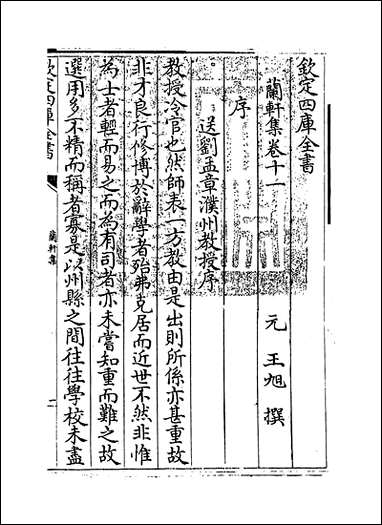 欽定四庫全書
蘭軒集卷十一
元 王旭 撰
序
送劉孟章濮州教授序
教授冷官也然師表一方教由是出則所係亦甚重故
非才良行修博於辭學者殆弗克居而近世不然非惟
為士者輕而易之而為有司者亦未嘗知重而難之故
選用多不精而稱者寡是以州縣之間往往學校未盡
欽定四庫全書
蘭軒集